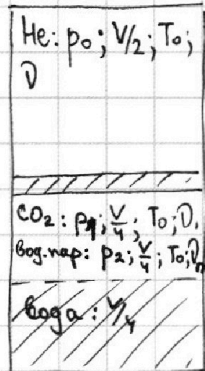 He: p₀; V/2; T₀;
ν
CO₂: p₁; V/4; T₀; ν₁
вод.пар: p₂; V/4; T₀; νₙ
вода: V/4